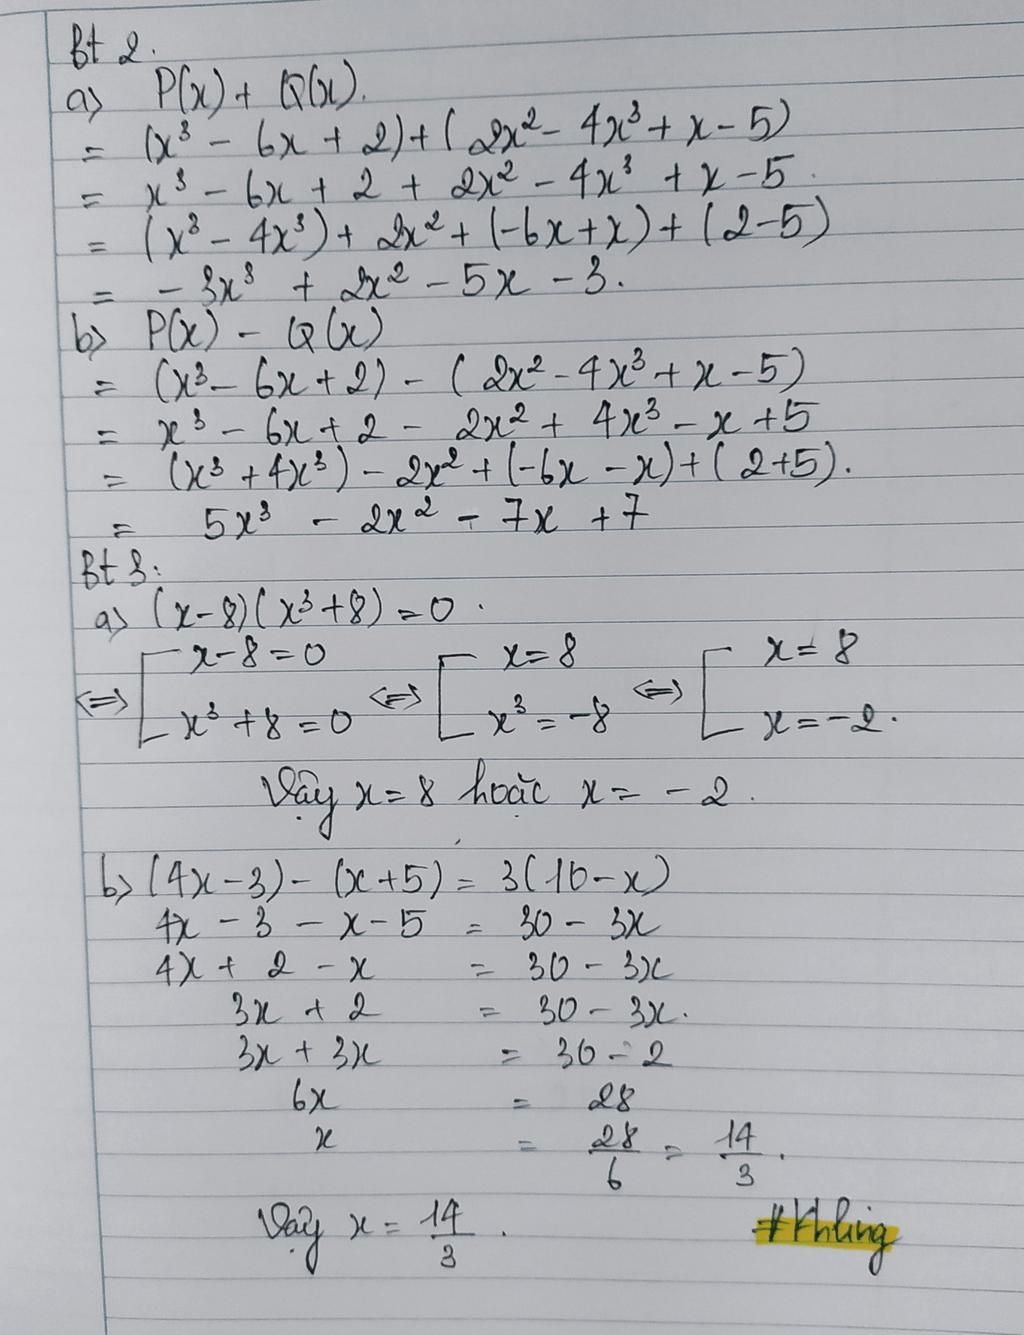 Bt 2.
a) P(x) + Q(x).
= (x³ - 6x + 2) + (2x² - 4x³ + x - 5)
= x³ - 6x + 2 + 2x² - 4x³ + x - 5.
= (x³ - 4x³) + 2x² + (-6x + x) + (2-5)
= - 3x³ + 2x² - 5x - 3.
b) P(x) - Q(x)
= (x³ - 6x + 2) - (2x² - 4x³ + x - 5)
= x³ - 6x + 2 - 2x² + 4x³ - x + 5
= (x³ + 4x³) - 2x² + (-6x - x) + (2+5).
= 5x³ - 2x² - 7x + 7
Bt 3:
a) (x-8)(x³+8) = 0.
⟺ [ x-8 = 0 ⟺ [ x = 8 ⟺ [ x = 8
x³ + 8 = 0 x³ = -8 x = -2.
Vậy x = 8 hoặc x = -2.
b) (4x-3) - (x+5) = 3(10-x)
4x - 3 - x - 5 = 30 - 3x
4x + 2 - x = 30 - 3x
3x + 2 = 30 - 3x.
3x + 3x = 30 - 2
6x = 28
x = 28/6 = 14/3.
Vậy x = 14/3.
#Khling